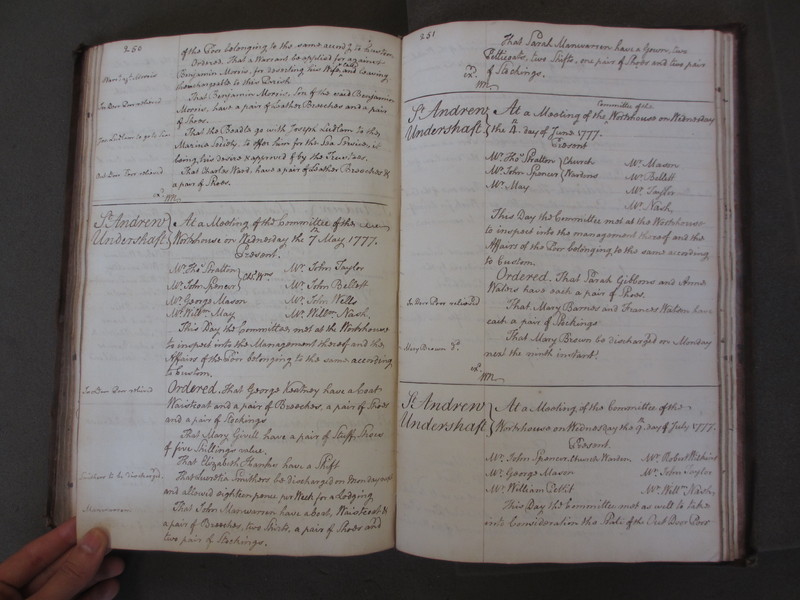 250
of the Poor belonging to the same accordg to Custom.
Ordered. That a Warrant be applied for against
Benjamin Morris, for deserting his Wife and leaving
them chargeable to this Parish
Warrt. agt Morris
That Benjamin Morris, Son of the said Benjamin
Morris, have a pair of Leather Breeches and a pair
of Shoes.
In Door Poor relieved
That the Beadle go with Joseph Ludlam to the
Marine Society, to offer him for the Sea Service, it
being his desire & approved of by the Trustees.
Jos. Ludlam to go to Sea
That Charles Ward, have a pair of Leather Breeches &
a pair of Shoes.
Out Door Poor relieved
St. Andrew
Undershaft
At a Meeting of the Committee of the
Workhouse on Wednesday the 7th May 1777.
Present.
Mr. Thos. Stratton
Mr. John Spencer
Ch: Wns
Mr. George Mason
Mr. Willm. May
Mr. John Taylor
Mr. John Bellett
Mr. John Wells
Mr. Willm. Nash.
This Day the Committee met at the Workhouse
to inspect into the Management thereof and the
Affairs of the Poor belonging to the same according
to Custom.
In Door Poor relieved
Ordered. That George Keatney have a Coat
Waistcoat and a pair of Breeches, a pair of Shoes
and a pair of Stockings
That Mary Givill have a pair of Stuff Shoes
of five Shillings value,
That Elizabeth Hanker have a Shift
Smithers to be discharged.
That Smithers be discharged on Monday next
and allowed eighteen pence per Week for a Lodging,
Manwarren
That John Manwarren have a Coat, Waistcoat &
a pair of Breeches, two Shirts, a pair of Shoes and
two pair of Stockings.
251
That Sarah Manwarren have a Gown, two
Petticoats, two Shifts, one pair of Shoes and two pair
of Stockings.
St. Andrew
Undershaft
At a Meeting of the Committee of the Workhouse on Wednesday
the 4th. day of June 1777.
Present
Mr. Thos. Stratton
Mr. John Spencer
Church
Wardens
Mr. May
Mr. Mason
Mr. Bellitt
Mr. Taylor
Mr. Nash
This Day the Committee met at the Workhouse
to inspect into the management thereof and the
Affairs of the Poor belonging to the same according
to Custom.
Ordered. That Sarah Gibbons and Anne
Waters have each a pair of Shoes.
In Door Poor relieved
That Mary Barnes and Frances Watson have
each a pair of Stockings
Mary Brown
That Mary Brown be discharged on Monday
next the ninth instant.
St. Andrew
Undershaft
At a Meeting of the Committee of the
Workhouse on Wednesday the 9th. day of July 1777.
Present.
Mr. John Spencer Church Warden
Mr. George Mason
Mr. William Pettit
Mr. Robert Watkins
Mr. John Taylor
Mr. Willm. Nash,
This Day the Committee met as well to take
into Consideration the State of the Out Door Poor